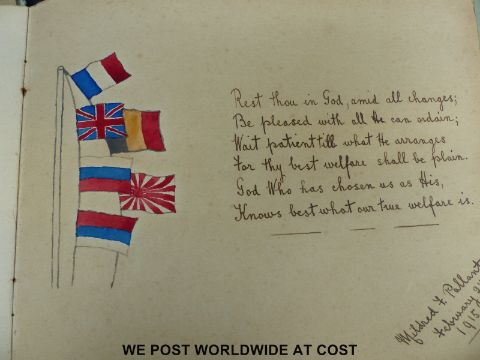 Rest thou in God, amid all changes;
Be pleased with all He can ordain;
Wait patient till what He arranges
For thy best welfare shall be plain.
God Who has chosen us as His,
Knows best what our true welfare is.
Mildred F Pallant
February
1915
WE POST WORLDWIDE AT COST